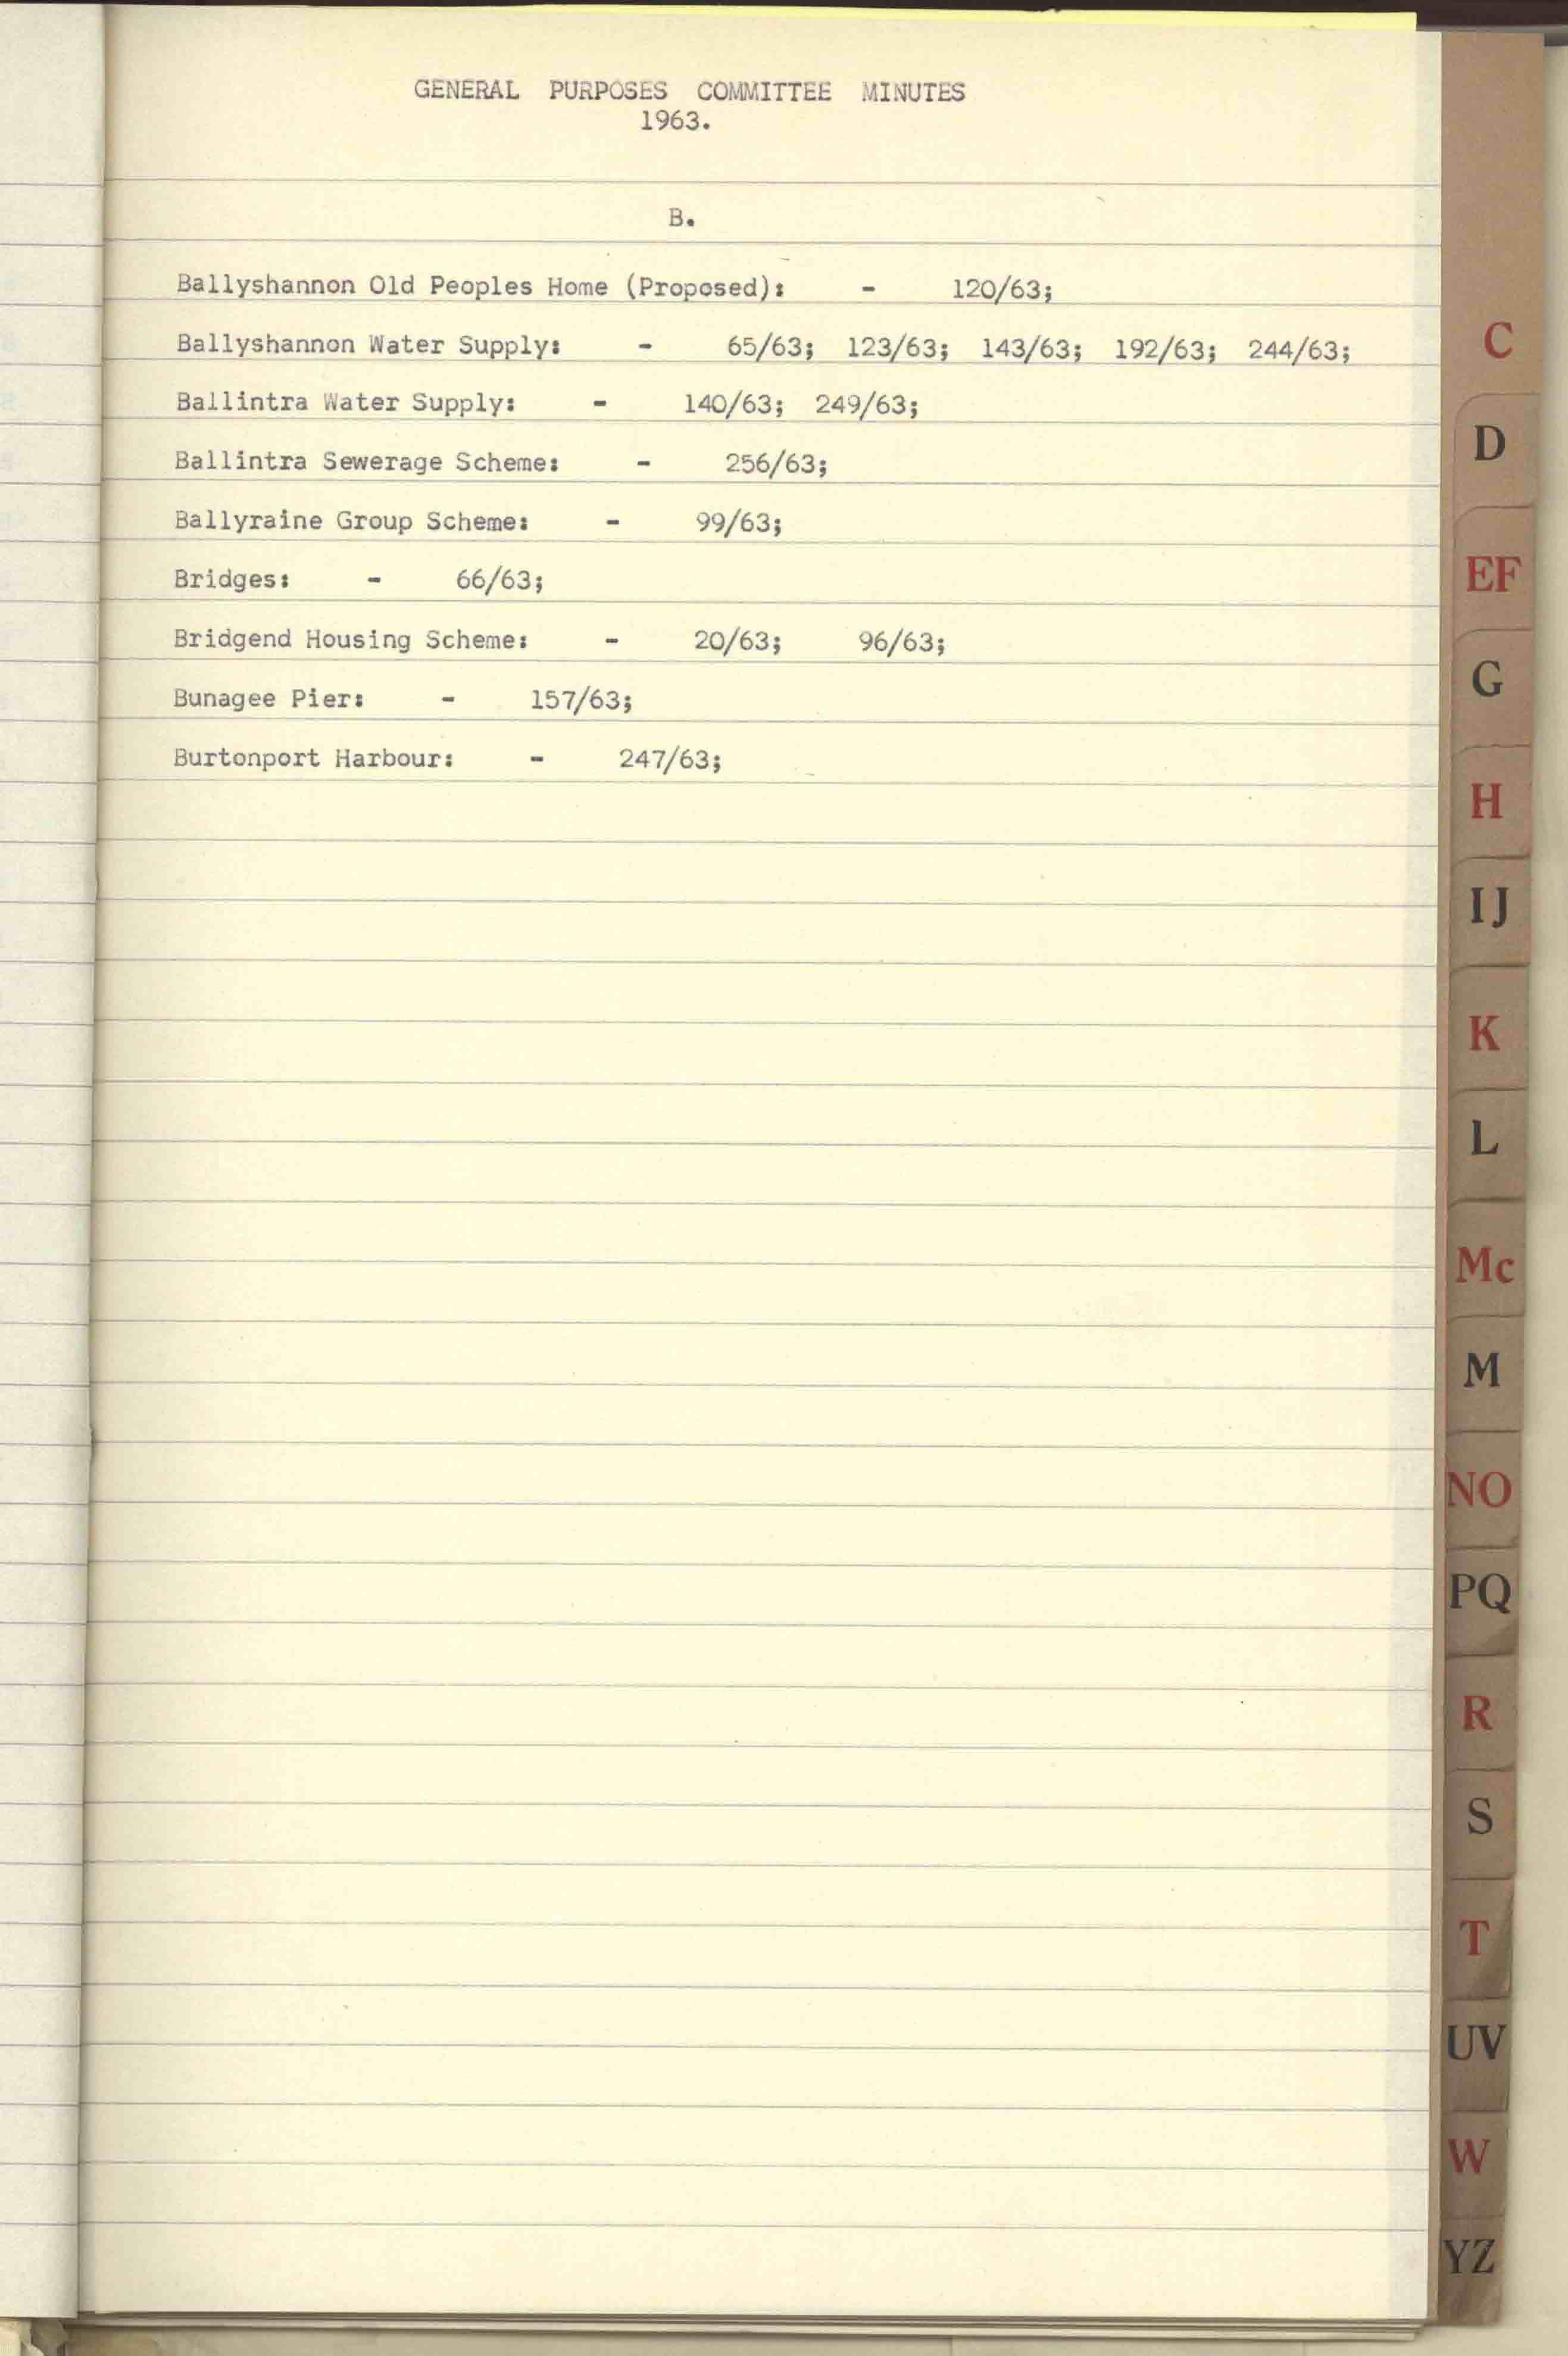 GENERAL PURPOSES COMMITTEE MINUTES
1963.
B.
Ballyshannon Old Peoples Home (Proposed): - 120/63;
Ballyshannon Water Supply: - 65/63; 123/63; 143/63; 192/63; 244/63;
Ballintra Water Supply: - 140/63; 249/63;
Ballintra Sewerage Scheme: - 256/63;
Ballyraine Group Scheme: - 99/63;
Bridges: - 66/63;
Bridgend Housing Scheme: - 20/63; 96/63;
Bunagee Pier: - 157/63;
Burtonport Harbour: - 247/63;
C
D
EF
G
H
IJ
K
L
Mc
M
NO
PQ
R
S
T
UV
W
YZ